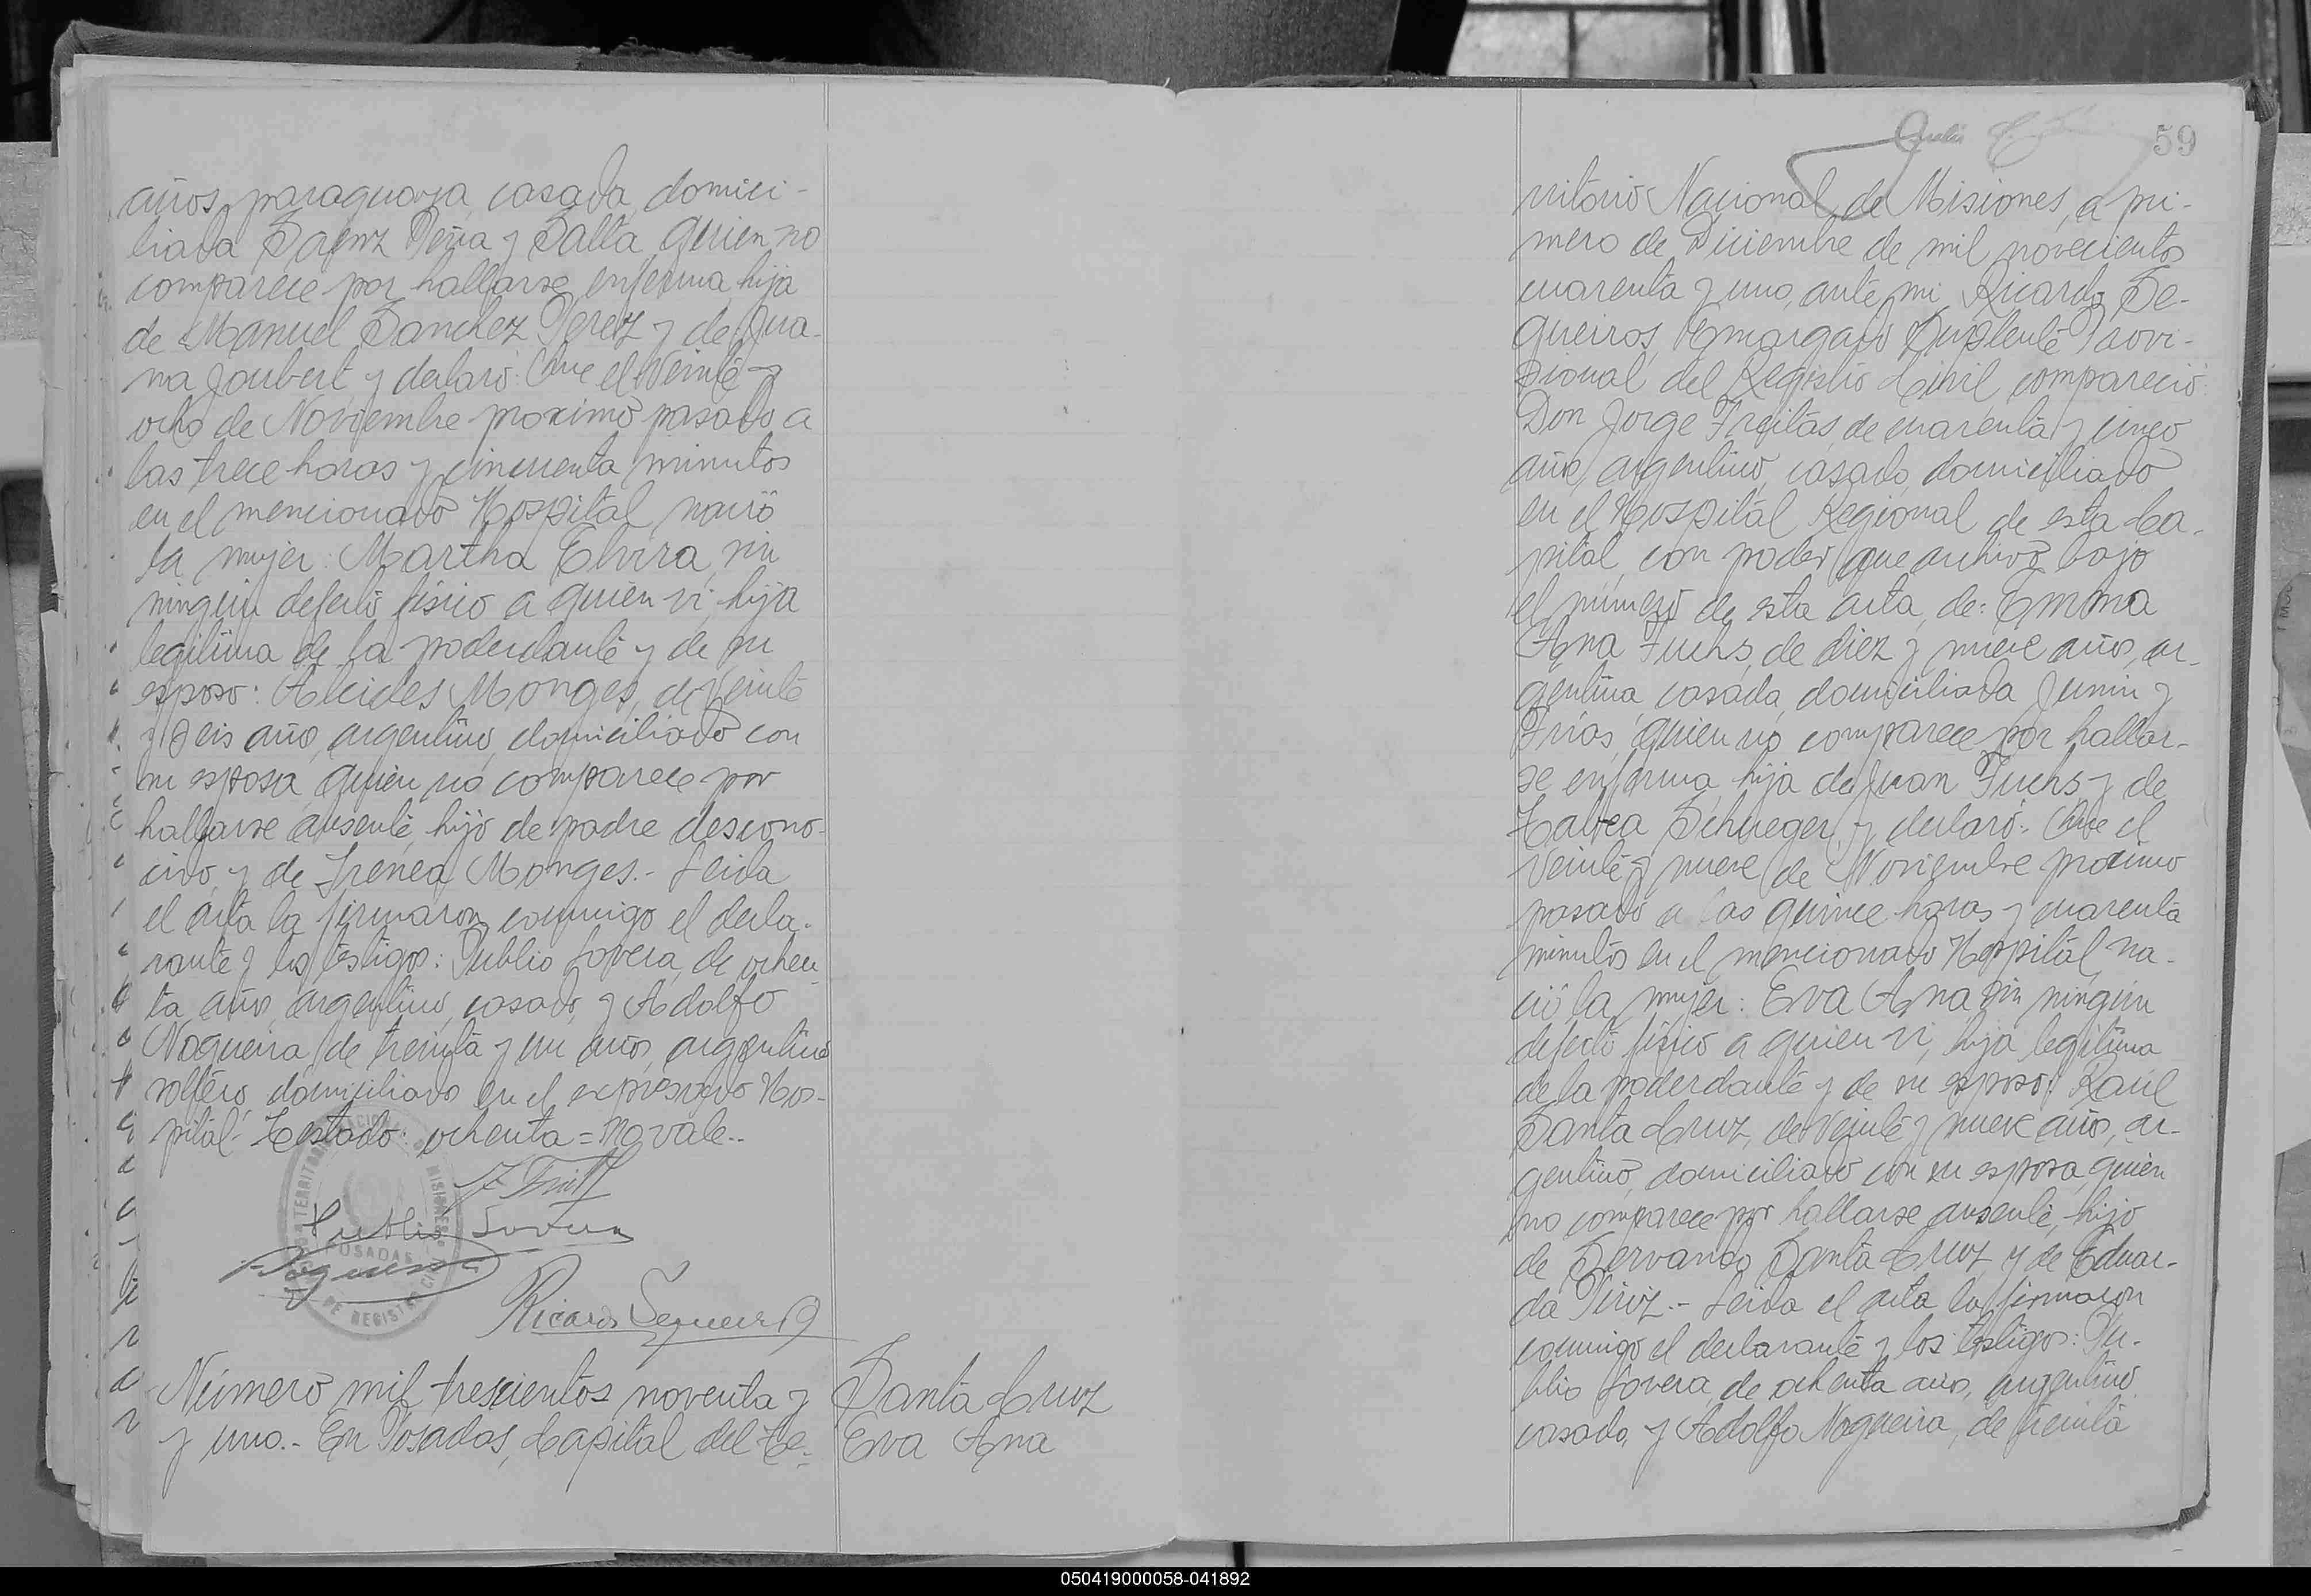 años, paraguaya, casada, domici-
liada Saenz Peña y Salta, quien no
comparece por hallarse enferma, hija
de Manuel Sanchez Perez y de Jua-
na Joubert, y declaró: Que el veinte y
ocho de Noviembre proximo pasado a
las trece horas y cincuenta minutos
en el mencionado Hospital, nació
la mujer: Martha Elvira, sin
ningún defecto físico a quien vi, hija
legitima de la poderdante y de su
esposo: Alcides Monges, de veinte
y seis años, argentino, domiciliado con
su esposa, quien no comparece por
hallarse ausente, hijo de padre descono-
cido y de Irenea Monges.- Leida
el acta la firmaron conmigo el decla-
rante y los testigos: Publio Lovera, de ochen
ta años, argentino, casado, y Adolfo
Nogueira, de treinta y un años, argentino
soltero, domiciliados en el expresado Hos-
pital.- Testado: ochenta = no vale..
Publio Lovera
Ricardo Sequeiros
TERRITORIO
MISIONES
POSADAS
DE REGISTRO CIVIL
Número mil trescientos noventa y
y uno.- En Posadas, Capital del Te-
Santa Cruz
Eva Ana
59
rritorio Nacional de Misiones, a pri-
mero de Diciembre de mil novecientos
cuarenta y uno, ante mi, Ricardo Se-
queiros, Encargado Suplente Provi-
sional del Registro Civil, compareció:
Don Jorge Freitas de cuarenta y cinco
años, argentino, casado, domiciliado
en el Hospital Regional de esta Ca-
pital, con poder que archivo bajo
el número de esta acta, de: Emma
Ana Fuchs, de diez y nueve años, ar-
gentina, casada, domiciliada Junin y
Frias, quien no comparece por hallar-
se enferma, hija de Juan Fuchs y de
y declaró: Que el
veinte y nueve de Noviembre proximo
pasado a las quince horas y cuarenta
minutos en el mencionado Hospital, na-
ció la mujer: Eva Ana sin ningún
defecto físico a quien vi, hija legitima
de la poderdante y de su esposo: Raúl
Santa Cruz, de veinte y nueve años, ar-
gentino, domiciliado con su esposa, quien
no comparece por hallarse ausente, hijo
de Servando Santa Cruz y de Eduar-
da Piriz.- Leida el acta la firmaron
conmigo el declarante y los testigos: Pu-
blio Lovera, de ochenta años, argentino
casado, y Adolfo Nogueira, de treinta
050419000058-041892